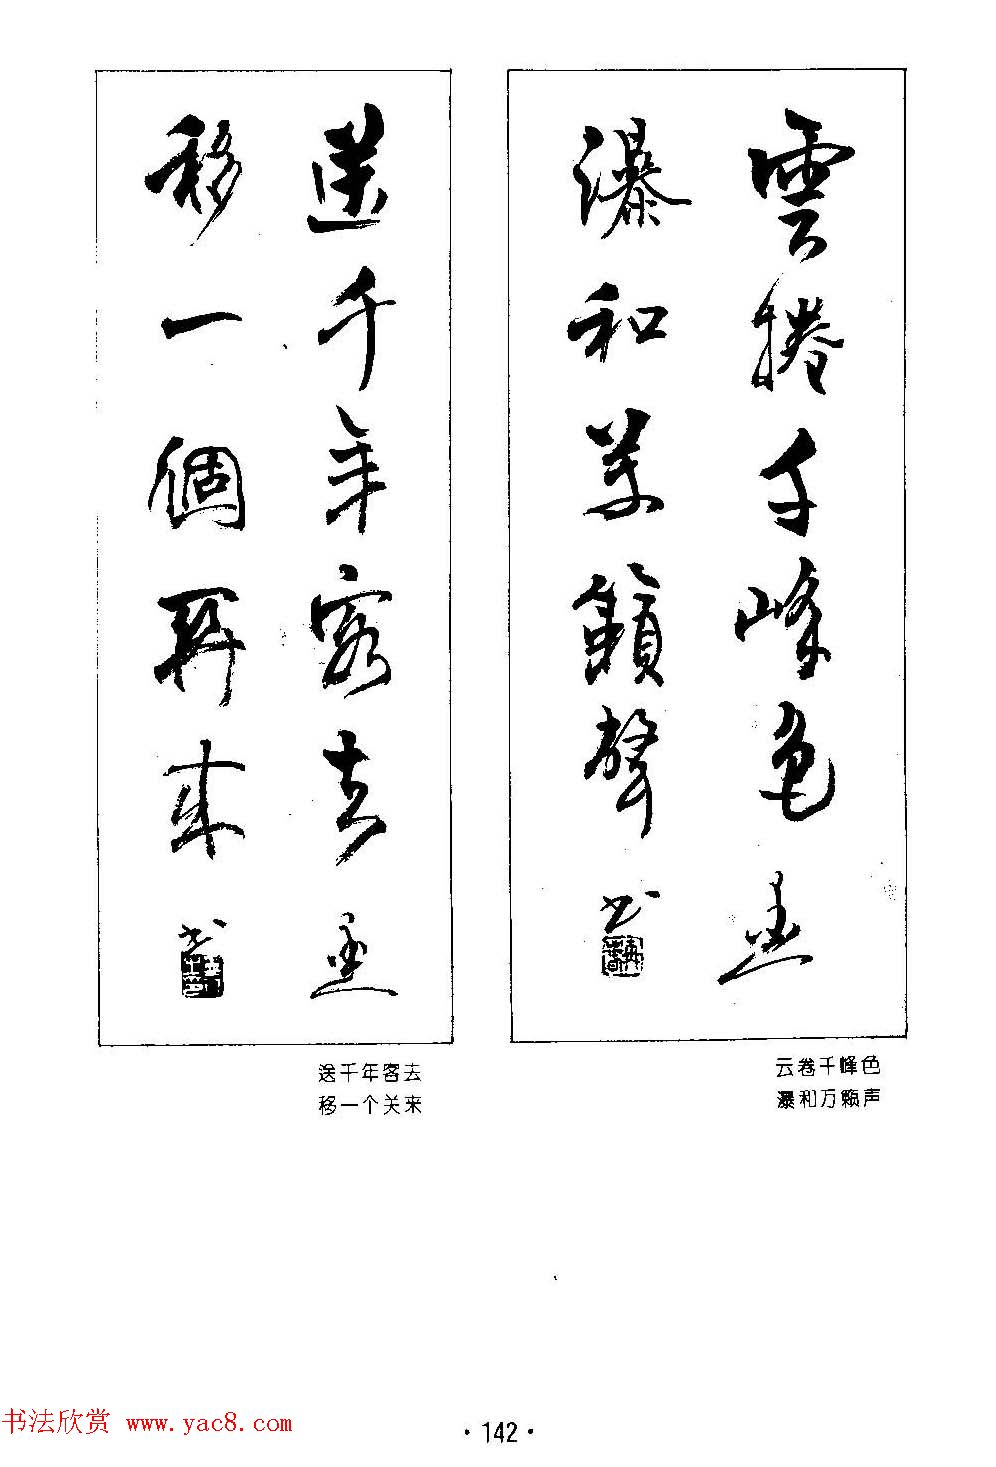 雲捲千峰色
瀑和萬籟聲 书
云卷千峰色
瀑和万籁声
送千年客去
移一個關来 书
送千年客去
移一个关来
·142·
书法欣赏 www.yac8.com